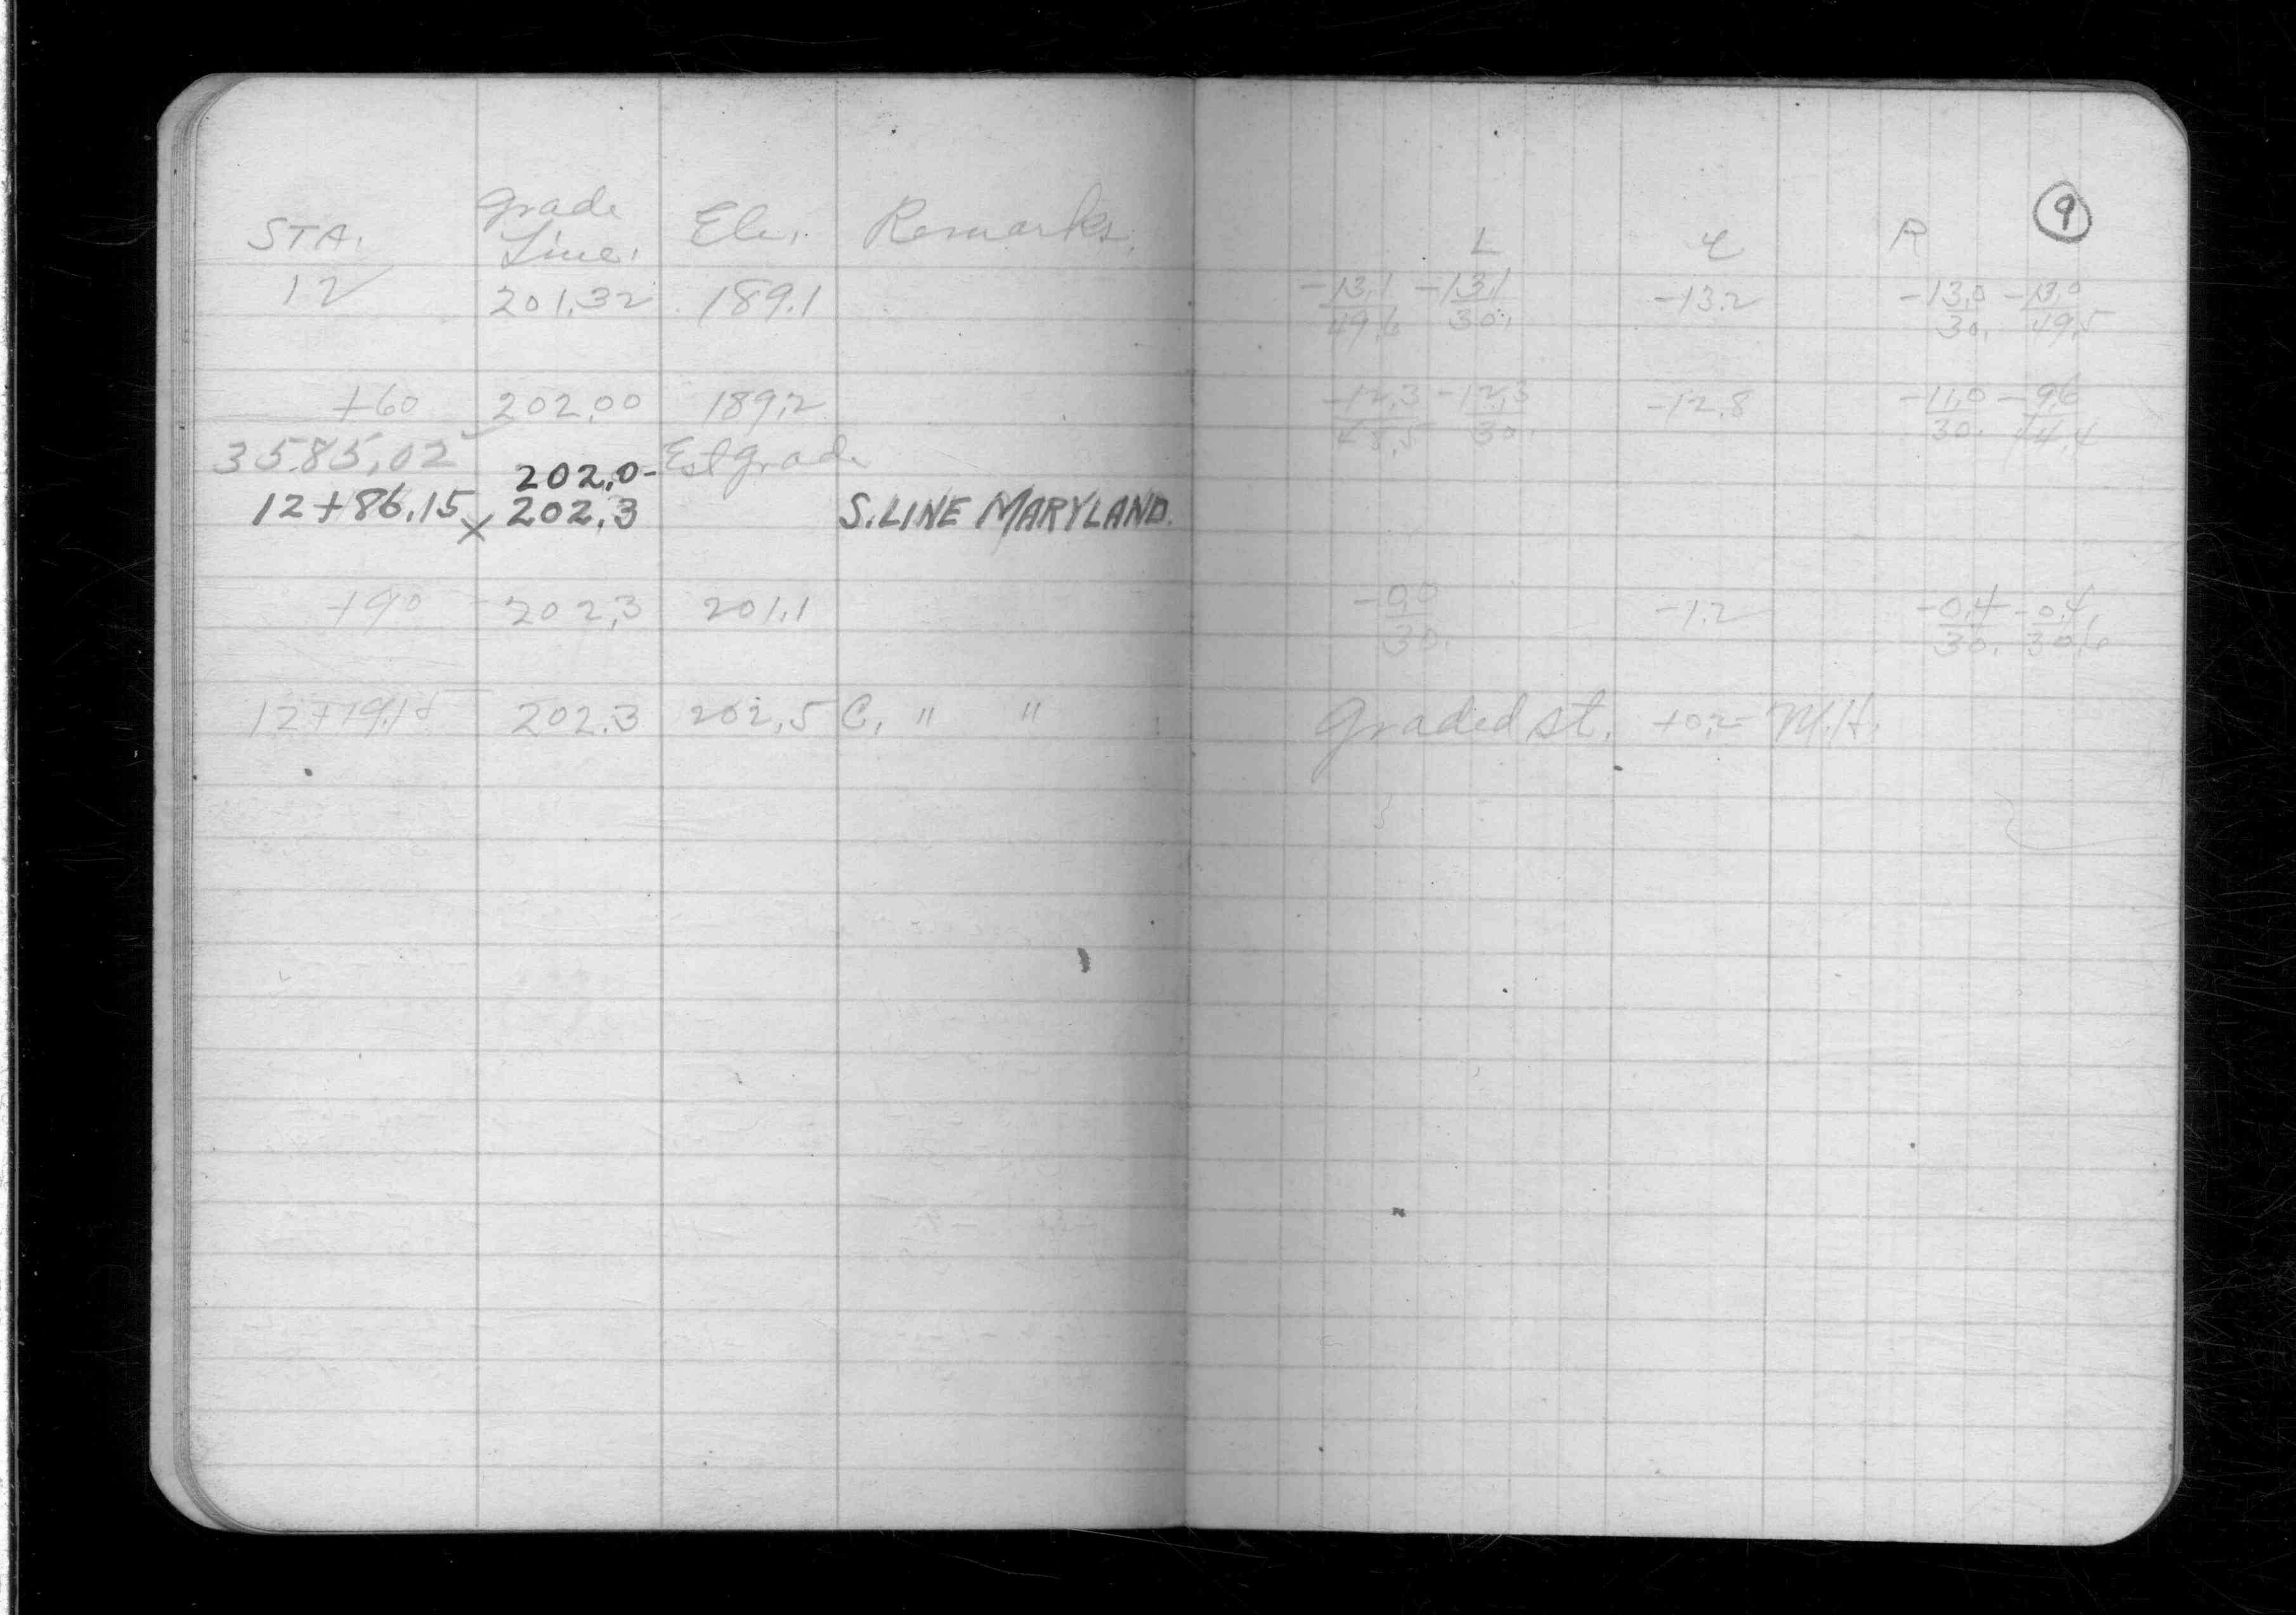 9
STA. Grade Line. Ele. Remarks. L ℄ R
12 201.32 189.1 -13.1/49.6 -13.1/30. -13.2 -13.0/30. -13.0/49.5
+60 202.00 189.2 -12.3/48.5 -12.3/30. -12.8 -11.0/30. -9.6/44.4
3585.02 202.0- Est grade
12+86.15 x 202.3 S. LINE MARYLAND.
+90 202.3 201.1 -0.0/30. -1.2 -0.4/30. -0.4/30.6
12+19.15 202.3 202.5 C. " " Graded st. +0.2= M.H.